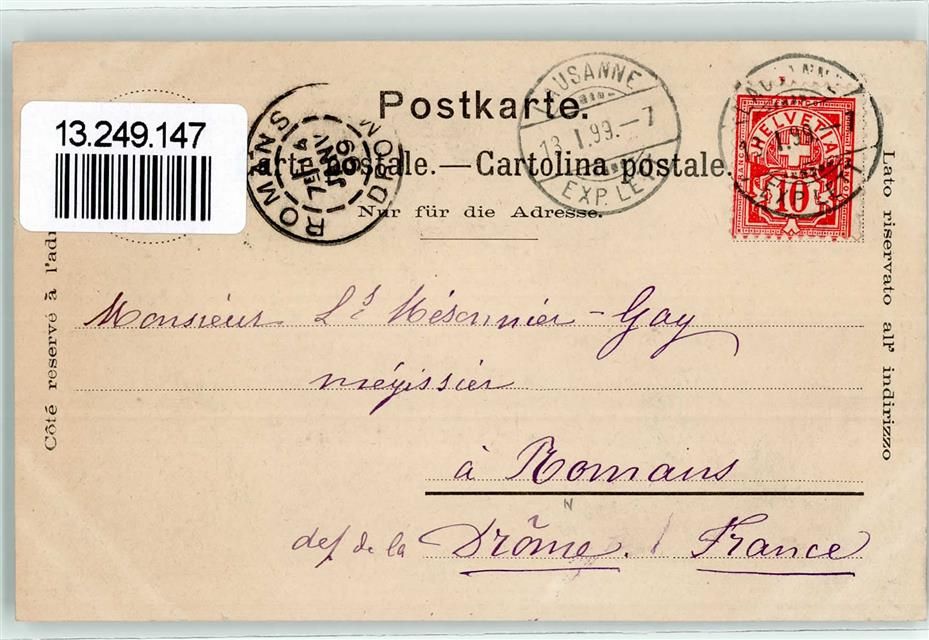 13.249.147
Postkarte.
Carte postale. — Cartolina postale.
Nur für die Adresse.
LAUSANNE
13.I.99.–7
EXP. LETT.
ROMANS
DROM
7E 14
JANV
99
HELVETIA
10
Côté réservé à l'adr
Lato riservato all' indirizzo
Monsieur Ls Mésonnier-Gay
mégissier
à Romans
dep de la Drôme. / France